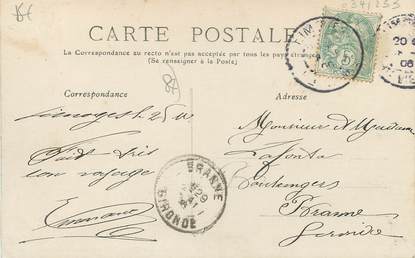 CARTE POSTALE
La Correspondance au recto n'est pas acceptée par tous les pays étrangers
(Se renseigner à la Poste)
Correspondance
Adresse
Limoges le 25
Fait très
bon voyage
Monsieur et Madame
Lafont
Boulangers
Branne
Gironde
BRANNE
GIRONDE
LIM
5
20
06